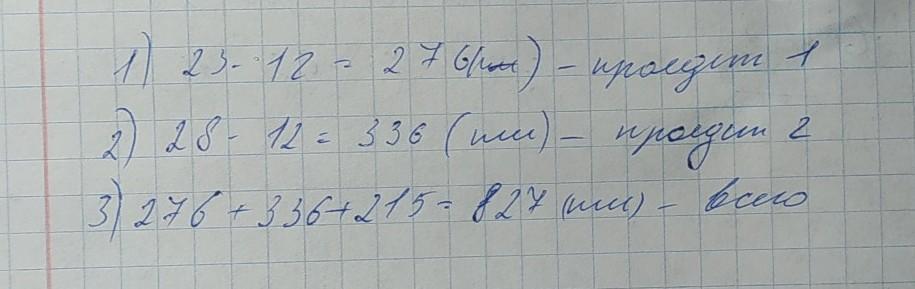 1) 23 - 12 = 276 (км) - проедет 1
2) 28 - 12 = 336 (км) - проедет 2
3) 276 + 336 + 215 = 827 (км) - всего